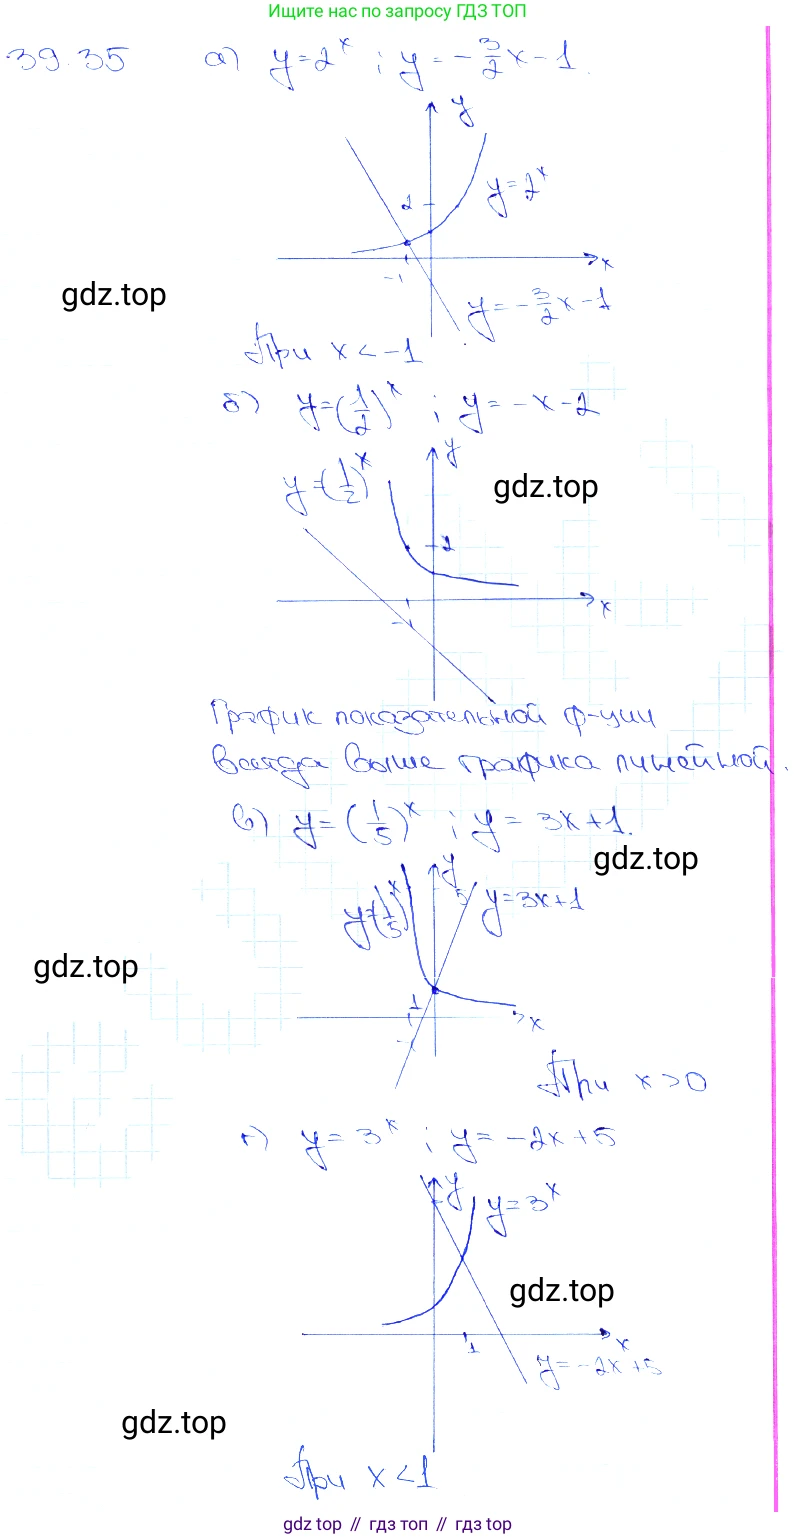 Ищите нас по запросу ГДЗ ТОП
39.35 а) y=2^x ; y = -3/2 x - 1.
y
2
y=2^x
x
-1
gdz.top
y=-3/2 x-1
При x < -1
б) y=(1/2)^x ; y = -x-2
y
y=(1/2)^x
gdz.top
2
x
-1
График показательной ф-ции
всегда выше графика линейной.
в) y=(1/5)^x ; y = 3x+1.
gdz.top
y
5
y=3x+1
y=(1/5)^x
gdz.top
1
x
-1
При x>0
г) y=3^x ; y=-2x+5
y
y=3^x
gdz.top
1
x
y=-2x+5
gdz.top
При x<1
gdz top // гдз топ // gdz top